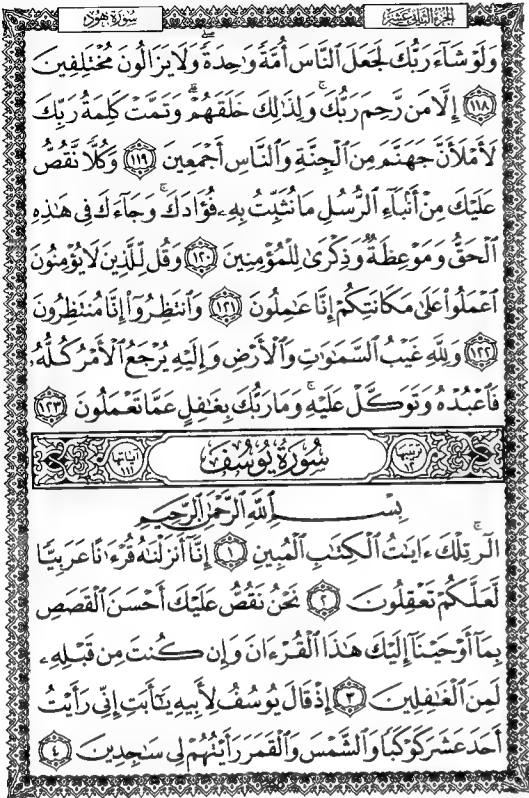 سُورَةُ هُودٍ
الجُزْءُ الثَّانِي عَشَرَ
وَلَوْ شَآءَ رَبُّكَ لَجَعَلَ ٱلنَّاسَ أُمَّةً وَٰحِدَةً ۖ وَلَا يَزَالُونَ مُخْتَلِفِينَ
﴿١١٨﴾ إِلَّا مَن رَّحِمَ رَبُّكَ ۚ وَلِذَٰلِكَ خَلَقَهُمْ ۗ وَتَمَّتْ كَلِمَةُ رَبِّكَ
لَأَمْلَأَنَّ جَهَنَّمَ مِنَ ٱلْجِنَّةِ وَٱلنَّاسِ أَجْمَعِينَ ﴿١١٩﴾ وَكُلًّا نَّقُصُّ
عَلَيْكَ مِنْ أَنۢبَآءِ ٱلرُّسُلِ مَا نُثَبِّتُ بِهِۦ فُؤَادَكَ ۚ وَجَآءَكَ فِى هَٰذِهِ
ٱلْحَقُّ وَمَوْعِظَةٌ وَذِكْرَىٰ لِلْمُؤْمِنِينَ ﴿١٢٠﴾ وَقُل لِّلَّذِينَ لَا يُؤْمِنُونَ
ٱعْمَلُوا۟ عَلَىٰ مَكَانَتِكُمْ إِنَّا عَٰمِلُونَ ﴿١٢١﴾ وَٱنتَظِرُوٓا۟ إِنَّا مُنتَظِرُونَ
﴿١٢٢﴾ وَلِلَّهِ غَيْبُ ٱلسَّمَٰوَٰتِ وَٱلْأَرْضِ وَإِلَيْهِ يُرْجَعُ ٱلْأَمْرُ كُلُّهُۥ
فَٱعْبُدْهُ وَتَوَكَّلْ عَلَيْهِ ۚ وَمَا رَبُّكَ بِغَٰفِلٍ عَمَّا تَعْمَلُونَ ﴿١٢٣﴾
ترتيبها ١٢ سُورَةُ يُوسُفَ آياتها ١١١
بِسْمِ ٱللَّهِ ٱلرَّحْمَٰنِ ٱلرَّحِيمِ
الٓر ۚ تِلْكَ ءَايَٰتُ ٱلْكِتَٰبِ ٱلْمُبِينِ ﴿١﴾ إِنَّآ أَنزَلْنَٰهُ قُرْءَٰنًا عَرَبِيًّا
لَّعَلَّكُمْ تَعْقِلُونَ ﴿٢﴾ نَحْنُ نَقُصُّ عَلَيْكَ أَحْسَنَ ٱلْقَصَصِ
بِمَآ أَوْحَيْنَآ إِلَيْكَ هَٰذَا ٱلْقُرْءَانَ وَإِن كُنتَ مِن قَبْلِهِۦ
لَمِنَ ٱلْغَٰفِلِينَ ﴿٣﴾ إِذْ قَالَ يُوسُفُ لِأَبِيهِ يَٰٓأَبَتِ إِنِّى رَأَيْتُ
أَحَدَ عَشَرَ كَوْكَبًا وَٱلشَّمْسَ وَٱلْقَمَرَ رَأَيْتُهُمْ لِى سَٰجِدِينَ ﴿٤﴾